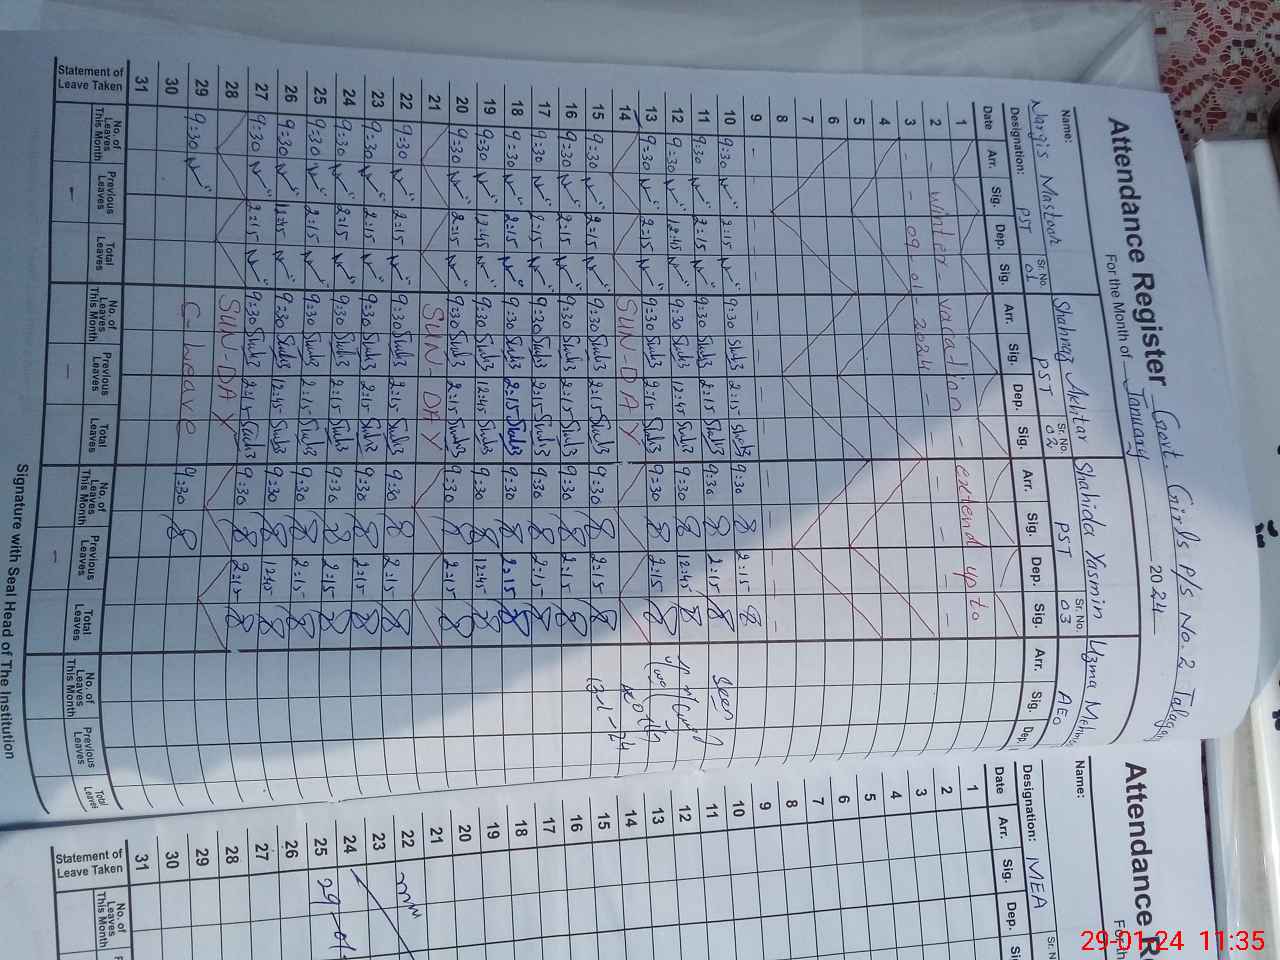 Attendance Register Govt. Girls P/S No.2 Talagang
For the Month of January 2024
Name: Nargis Mastoor Sr. No. 01 Shahnaz Akhtar Sr. No. 02 Shahida Yasmin Sr. No. 03 Uzma Mehmo
Designation: PST PST PST AEO
Date Arr. Sig. Dep. Sig. Arr. Sig. Dep. Sig. Arr. Sig. Dep. Sig. Arr. Sig. Dep.
1
2 - winter vacation - extend up to
3 - - 09-01-2024 - - -
4
5
6
7
8
9 - - - - - -
10 9:30 2:15 9:30 2:15 9:30 2:15
11 9:30 2:15 9:30 2:15 9:30 2:15 Seen
12 9:30 12:45 9:30 12:45 9:30 12:45
13 9:30 2:15 9:30 2:15 9:30 2:15
14 SUN-DAY
15 9:30 2:15 9:30 2:15 9:30 2:15
16 9:30 2:15 9:30 2:15 9:30 2:15
17 9:30 2:15 9:30 2:15 9:30 2:15
18 9:30 2:15 9:30 2:15 9:30 2:15
19 9:30 12:45 9:30 12:45 9:30 12:45
20 9:30 2:15 9:30 2:15 9:30 2:15
21 SUN DAY
22 9:30 2:15 9:30 2:15 9:30 2:15
23 9:30 2:15 9:30 2:15 9:30 2:15
24 9:30 2:15 9:30 2:15 9:30 2:15
25 9:30 2:15 9:30 2:15 9:30 2:15
26 9:30 12:45 9:30 12:45 9:30 12:45
27 9:30 2:15 9:30 2:15 9:30 2:15
28 SUN-DAY
29 9:30 C-Leave 9:30
30
31
Statement of Leave Taken No. of Leaves This Month Previous Leaves Total Leaves No. of Leaves This Month Previous Leaves Total Leaves No. of Leaves This Month Previous Leaves Total Leaves No. of Leaves This Month Previous Leaves Total Leaves
Signature with Seal Head of The Institution
Attendance Re
For th
Name:
Designation: MEA
Date Arr. Sig. Dep.
1
2
3
4
5
6
7
8
9
10
11
12
13
14
15
16
17
18
19
20
21
22
23
24
25 29-01
26
27
28
29
30
31
Statement of Leave Taken No. of Leaves This Month
29-01-24 11:35